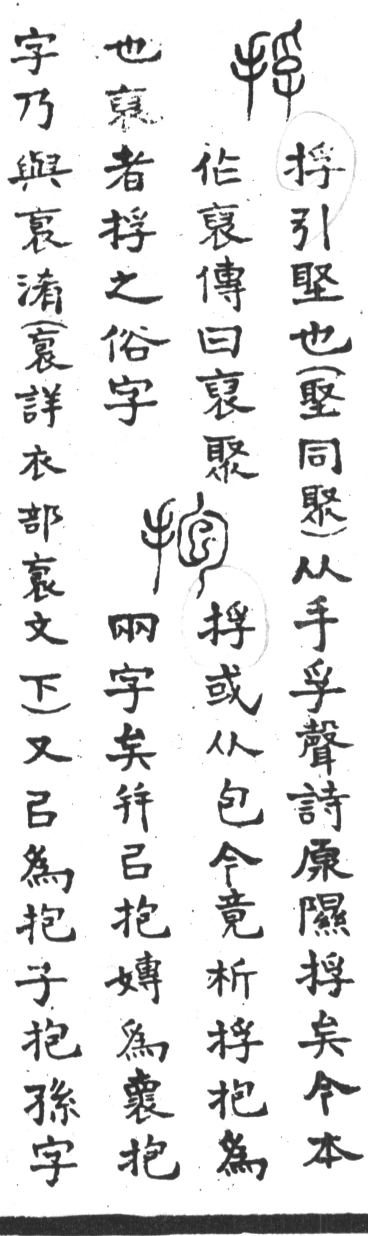 捊
捊引埾也(埾同聚)从手孚聲詩原隰捊矣今本
作裒傳曰裒聚
也裒者捊之俗字
抱
捊或从包今竟析捊抱為
兩字矣并㠯抱嫥為褱抱
字乃與袌淆(袌詳衣部袌文下)又㠯為抱子抱孫字